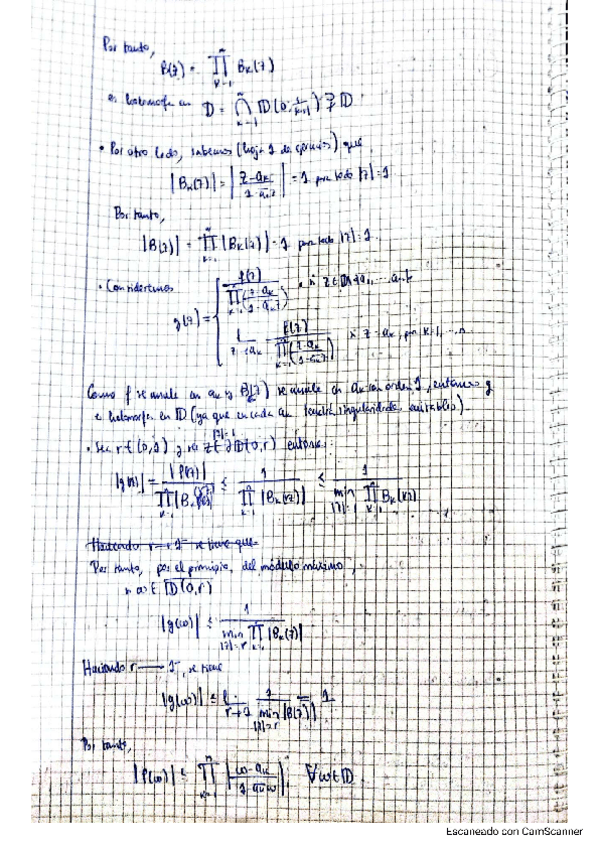 Por tanto,
B(z) = ∏_{k=1}^{n} B_k(z)
es holomorfa en D = ⋂_{k=1}^{n} 𝔻(0, 1/|a_k|) ⊋ 𝔻
• Por otro lado, sabemos (hoja 1 de ejercicios) que
|B_k(z)| = |z-a_k / 1-a_k z| = 1 para todo |z|=1.
Por tanto,
|B(z)| = ∏_{k=1}^{n} |B_k(z)| = 1 para todo |z|=1.
• Consideremos
g(z) = { f(z) / ∏_{k=1}^{n} (z-a_k / 1-a_k z) , si z ∈ 𝔻\{a_1, ... a_n}
lim_{z→a_k} f(z) / ∏_{k=1}^{n} (z-a_k / 1-a_k z) si z=a_k, para k=1, ... n
Como f se anula en a_k y B(z) se anula en a_k con orden 1, entonces g
es holomorfa en 𝔻 (ya que en cada a_k tendría singularidades evitables).
• Sea r ∈ (0,1) y sea z ∈ ∂𝔻(0,r) entonces:
|z|=1
|g(rz)| = |f(rz)| / ∏_{k=1}^{n} |B_k(rz)| ≤ 1 / ∏_{k=1}^{n} |B_k(rz)| ≤ 1 / min_{|z|=1} ∏_{k=1}^{n} B_k(rz)
Haciendo r → 1⁻ se tiene que
Por tanto, por el principio del módulo máximo,
si ω ∈ 𝔻(0,r)
|g(ω)| ≤ 1 / min_{|z|=r} ∏_{k=1}^{n} |B_k(z)|
Haciendo r → 1⁻, se tiene
|g(ω)| ≤ lim_{r→1} 1 / min_{|z|=r} |B(z)| = 1
Por tanto,
|f(ω)| ≤ ∏_{k=1}^{n} |ω-a_k / 1-a_k ω|, ∀ω∈𝔻.
Escaneado con CamScanner